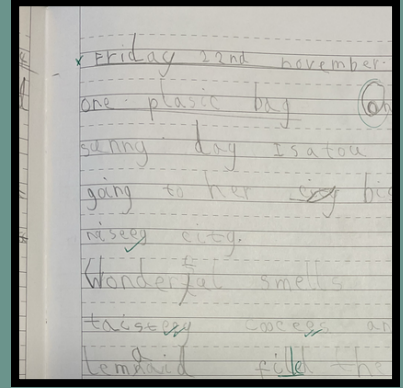 x Friday 22nd november.
one plasic bag On
sunny day Isatou
going to her city big
niseey city.
Wonderful smells
taisteey coocees an
lemnaid filled the